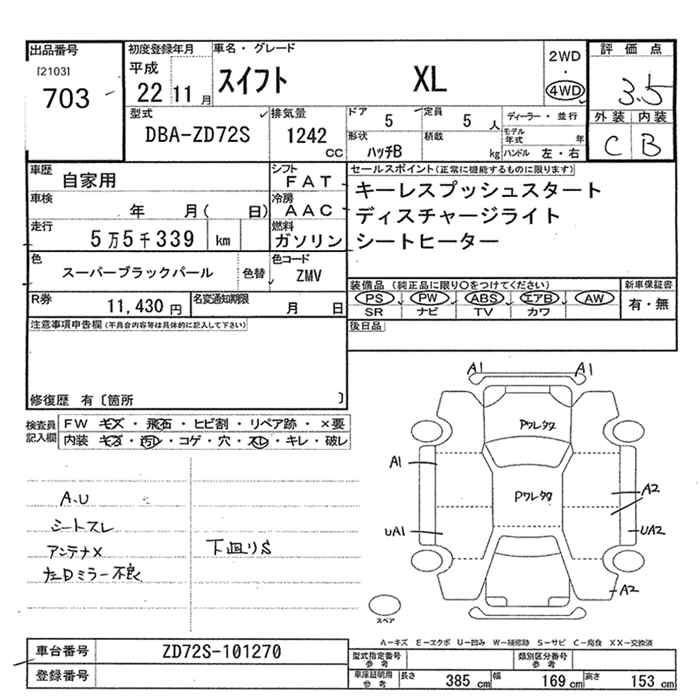 出品番号
[2103]
703
初度登録年月
平成
22 11 月
車名・グレード
スイフト XL
2WD
・
4WD
評価点
3.5
外装 内装
C B
型式
DBA-ZD72S
排気量
1242
CC
ドア
5
定員
5 人
形状
ハッチB
積載
kg
ディーラー・並行
モデル年式 年
ハンドル 左・右
車歴
自家用
車検
年 月( 日)
走行
5万5千339 km
色
スーパーブラックパール
色替
シフト
FAT
冷房
AAC
燃料
ガソリン
色コード
ZMV
R券
11,430 円
名変通知期限
月 日
セールスポイント(正常に機能するものに限ります)
キーレスプッシュスタート
ディスチャージライト
シートヒーター
装備品(純正品に限り〇をつけてください)
PS PW ABS エアB AW
SR ナビ TV カワ
新車保証書
有・無
後日品
注意事項申告欄(不具合内容等は具体的に記入して下さい)
修復歴 有〔箇所 〕
検査員
記入欄
FW キズ・飛石・ヒビ割・リペア跡・×要
内装 キズ・汚レ・コゲ・穴・スレ・キレ・破レ
A.U
シートスレ
アンテナX
左Dミラー不良
下廻りS
A1 A1
Pワレタワ
A1
Pワレタワ
A2
UA1
UA2
A2
スペア
A－キズ E－エクボ U－凹み W－補修跡 S－サビ C－腐食 XX－交換済
車台番号
ZD72S-101270
登録番号
型式指定番号
参考
類別区分番号
参考
車庫証明用
参考
長さ 385 cm
幅 169 cm
高さ 153 cm